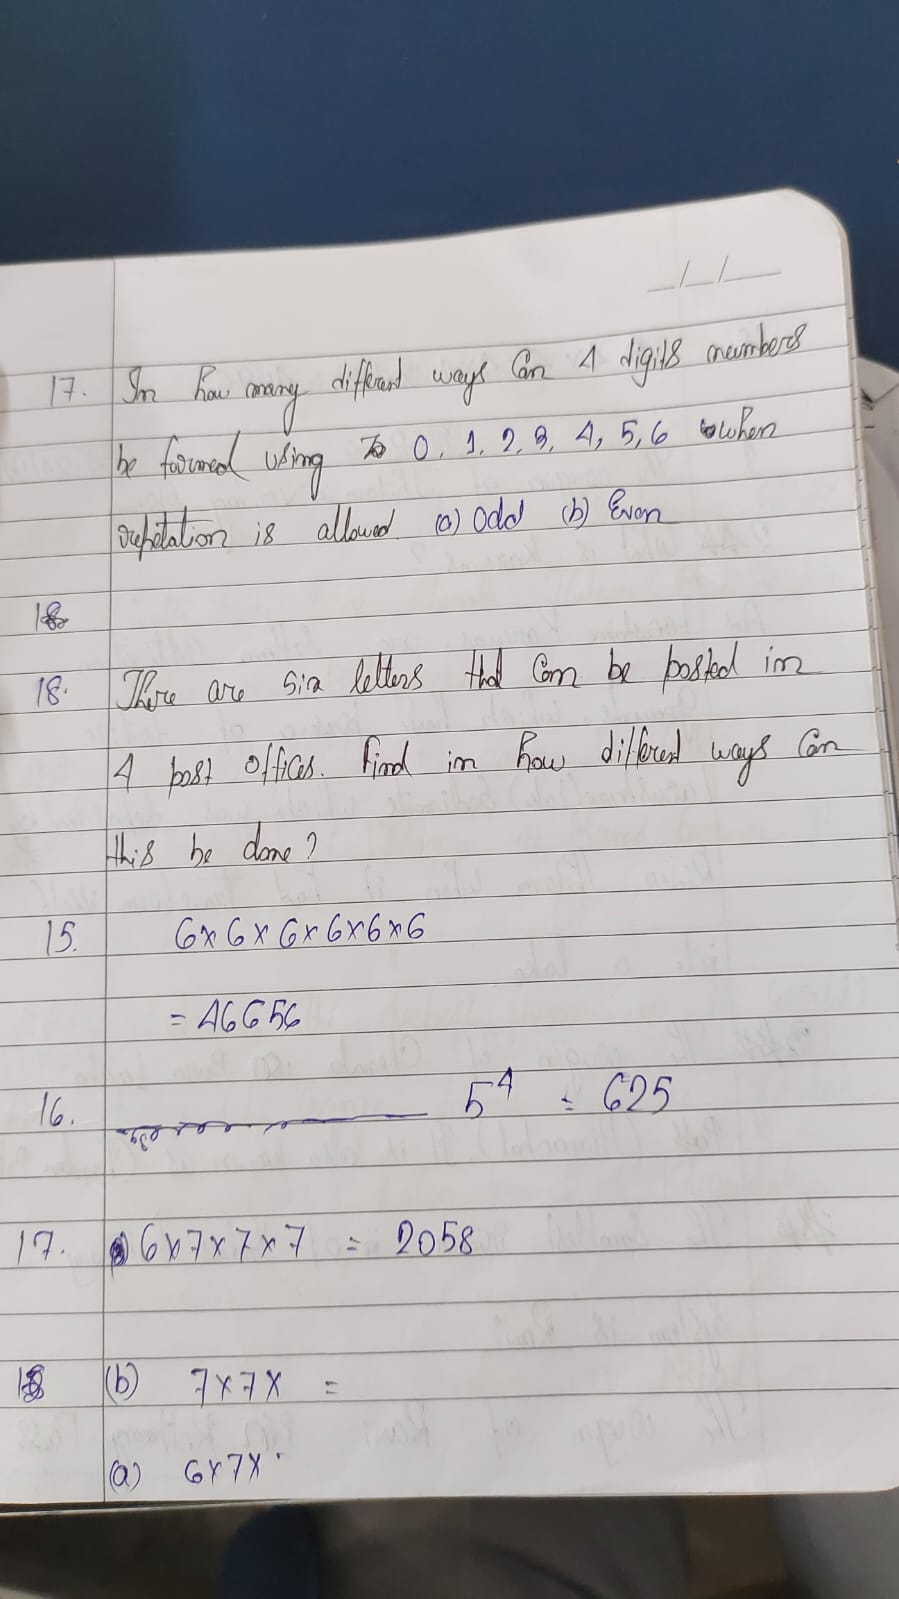 _/_/__
17. In how many different ways Can 4 digits numbers
be formed using 0, 1, 2, 3, 4, 5, 6 when
repitation is allowed. (a) Odd (b) Even
18
18. There are six letters that Can be posted in
4 post offices. Find in how different ways Can
this be done?
15. 6×6×6×6×6×6
= 46656
16. 5⁴ = 625
17. 6×7×7×7 = 2058
18 (b) 7×7× =
(a) 6×7×